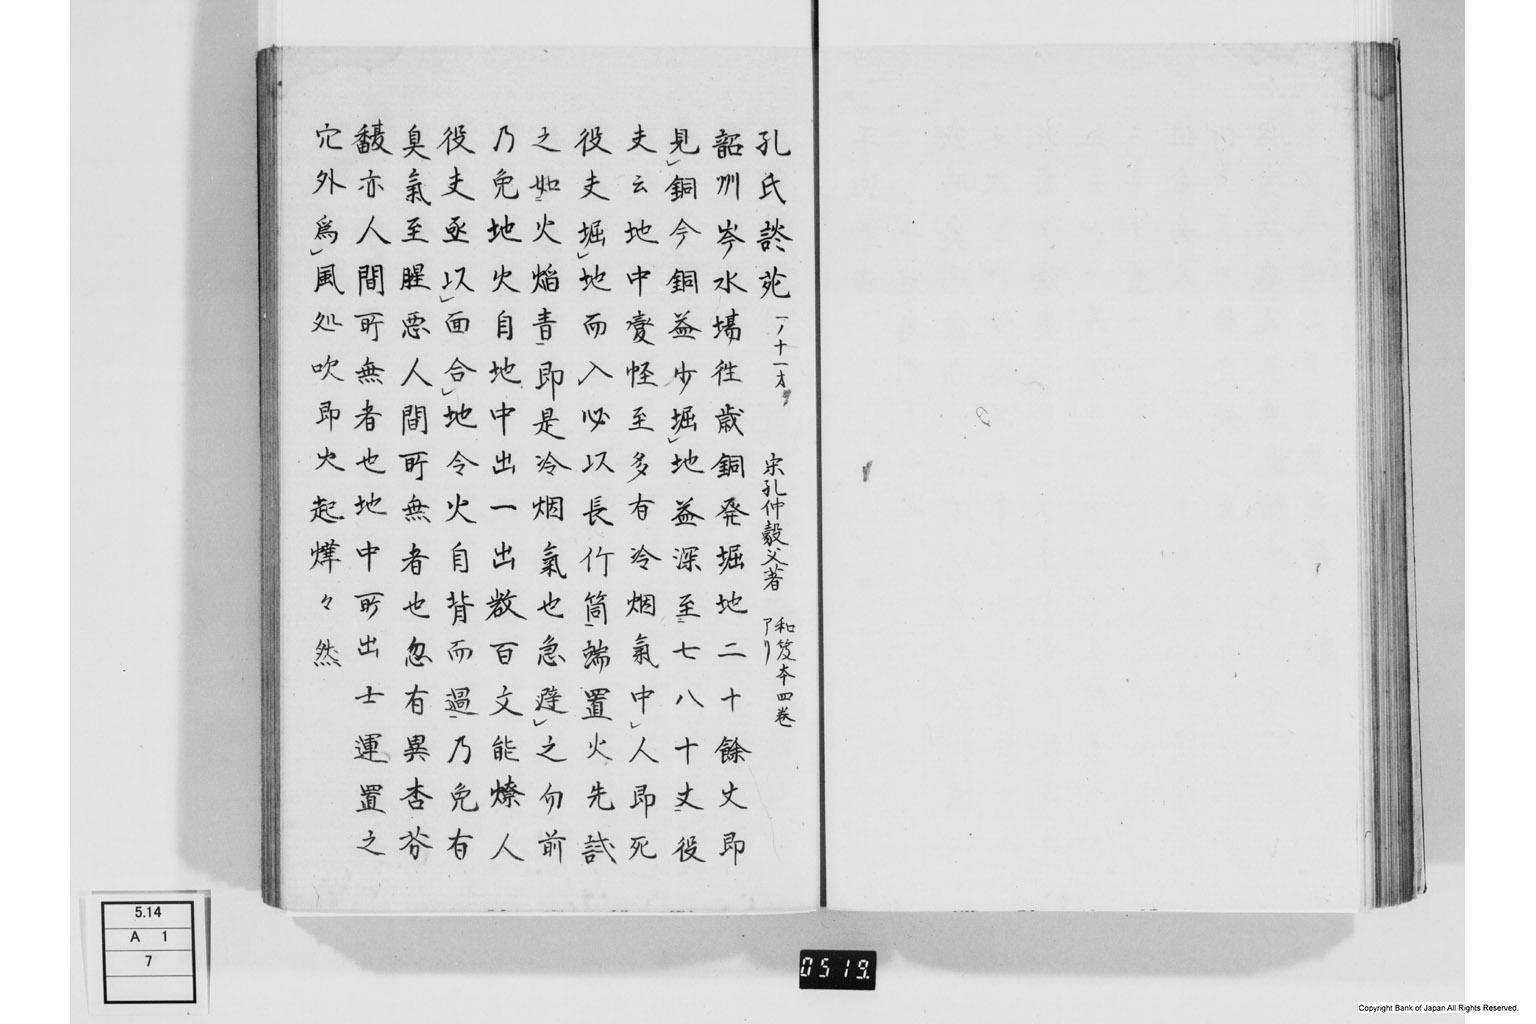 孔氏談苑 一ノ十一才 宋孔仲毅父著 和笈本四巻アリ
韶州岑水場往歳銅発堀地二十餘丈即
見銅今銅益少堀地益深至七八十丈役
夫云地中変怪至多有冷烟氣中人即死
役夫堀地而入必以長竹筒端置火先試
之如火焔青即是冷烟氣也急避之勿前
乃免地火自地中出一出数百文能燎人
役夫亟以面合地令火自背而過乃免有
臭氣至腥悪人間所無者也忽有異杏芬
馥亦人間所無者也地中所出士運置之
穴外為風処吹即火起燁々然
5.14
A 1
7
0519.
Copyright Bank of Japan All Rights Reserved.